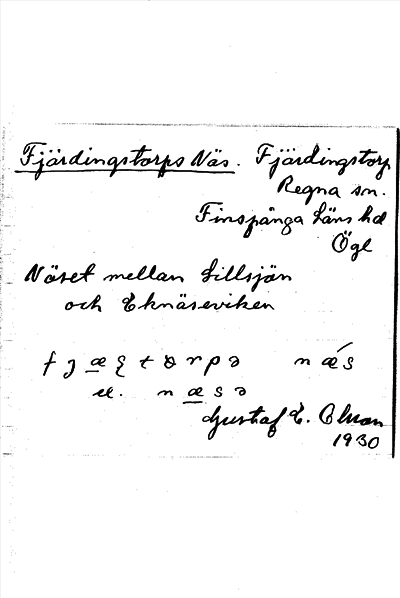 Fjärdingstorps Näs. Fjärdingstorp
Regna sn.
Finspånga läns hd
Ögl
Näset mellan Lillsjön
och Eknäseviken
næ´s
el. næsə
Gustaf E.
1930